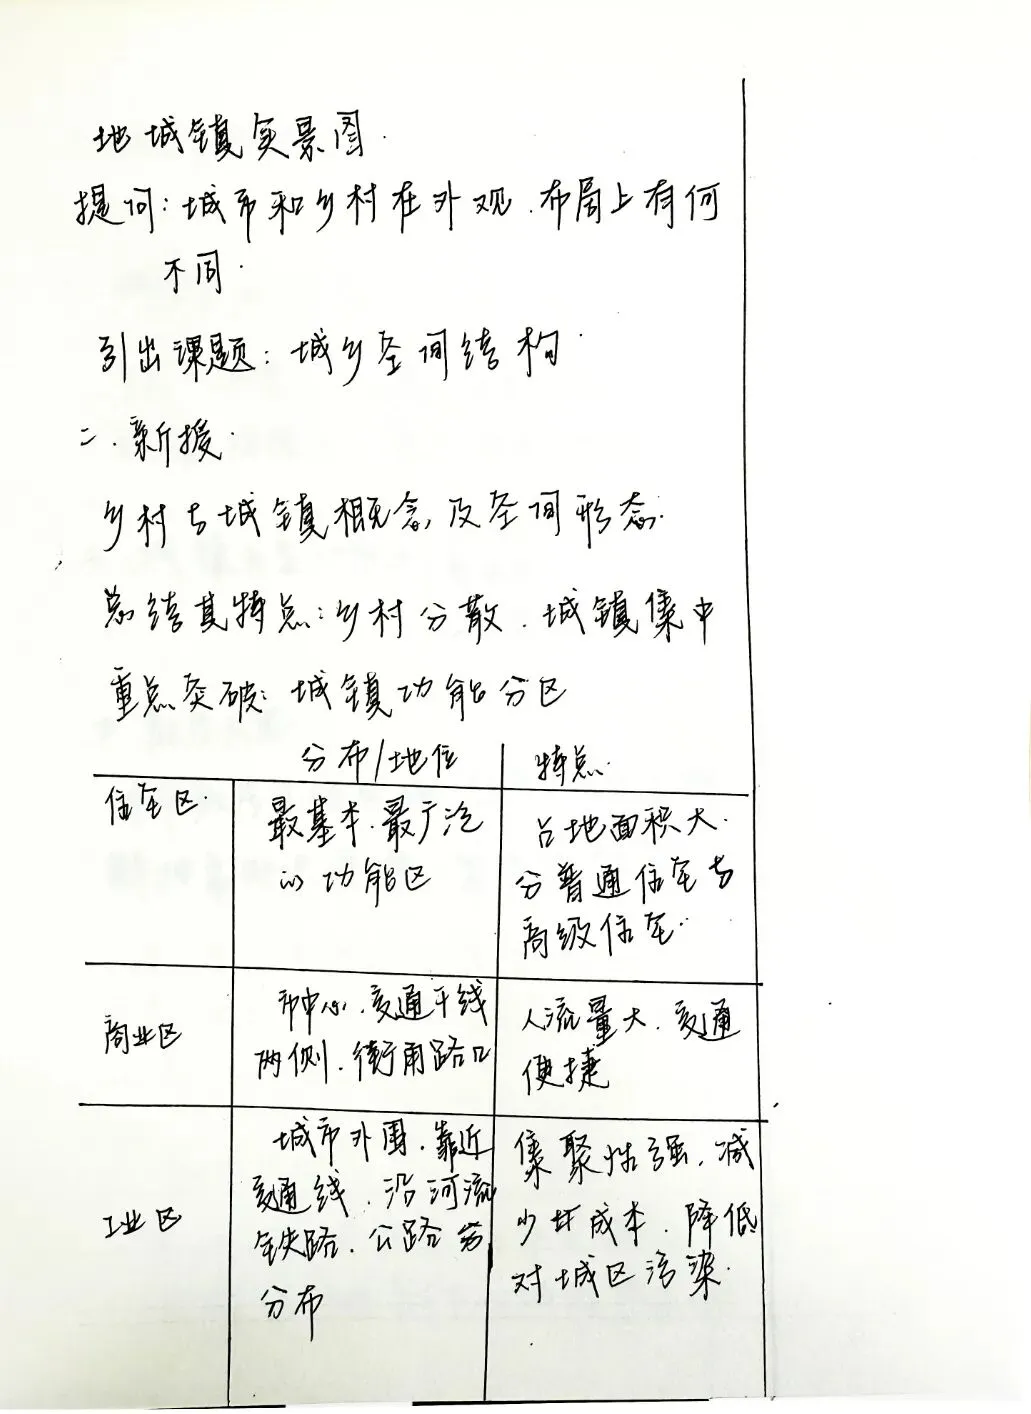 地城镇实景图.
提问: 城市和乡村在外观.布局上有何
不同.
引出课题: 城乡空间结构.
二.新授.
乡村与城镇概念及空间形态.
总结其特点: 乡村分散.城镇集中
重点突破: 城镇功能分区
分布/地位 特点.
住宅区. 最基本.最广泛 占地面积大.
的功能区 分普通住宅与
高级住宅.
商业区 市中心.交通干线 人流量大.交通
两侧.街角路口 便捷
工业区 城市外围.靠近 集聚性强.减
交通线.沿河流 少 成本.降低
铁路.公路 对城区污染.
分布